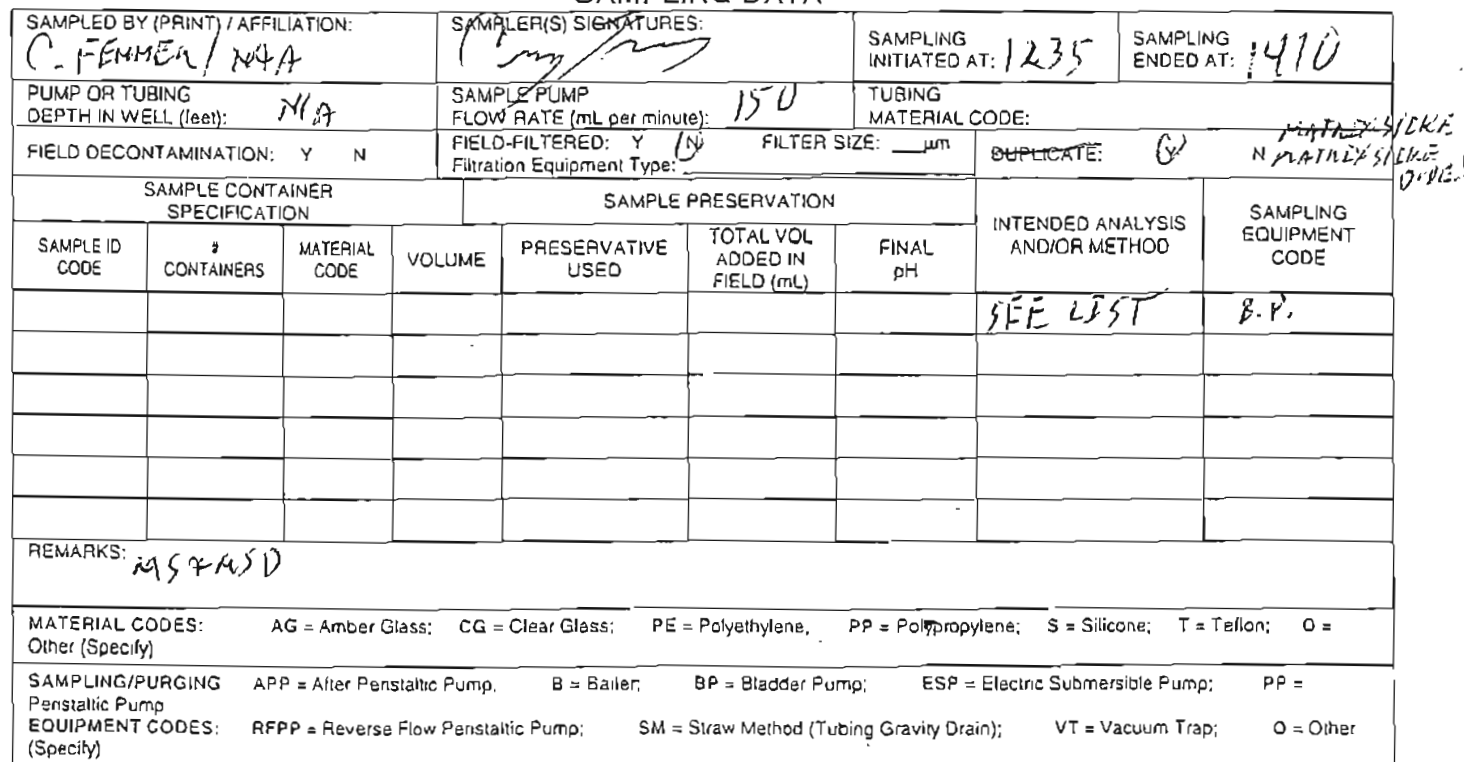 SAMPLED BY (PRINT) / AFFILIATION:
C. FEMMER / N4A
SAMPLER(S) SIGNATURES:
SAMPLING
INITIATED AT: 1235
SAMPLING
ENDED AT: 1410
PUMP OR TUBING
DEPTH IN WELL (feet): N/A
SAMPLE PUMP
FLOW RATE (mL per minute): 150
TUBING
MATERIAL CODE:
FIELD DECONTAMINATION: Y N
FIELD-FILTERED: Y N FILTER SIZE: ___ µm
Filtration Equipment Type:
DUPLICATE: Y N
SAMPLE CONTAINER
SPECIFICATION
SAMPLE PRESERVATION
INTENDED ANALYSIS
AND/OR METHOD
SAMPLING
EQUIPMENT
CODE
SAMPLE ID
CODE
#
CONTAINERS
MATERIAL
CODE
VOLUME
PRESERVATIVE
USED
TOTAL VOL
ADDED IN
FIELD (mL)
FINAL
pH
SEE LIST
B.P.
REMARKS: MS + MSD
MATERIAL CODES: AG = Amber Glass; CG = Clear Glass; PE = Polyethylene, PP = Polypropylene; S = Silicone; T = Teflon; O =
Other (Specify)
SAMPLING/PURGING APP = After Penstaltic Pump, B = Bailer; BP = Bladder Pump; ESP = Electric Submersible Pump; PP =
Penstaltic Pump
EQUIPMENT CODES: RFPP = Reverse Flow Penstaltic Pump; SM = Straw Method (Tubing Gravity Drain); VT = Vacuum Trap; O = Other
(Specify)